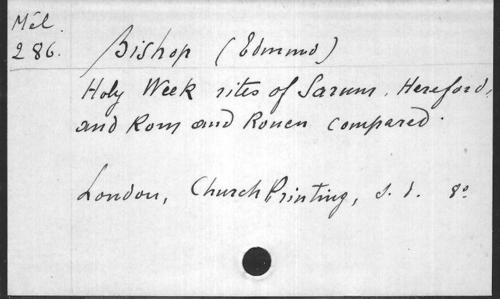 Mél.
286.
Bishop (Edmund)
Holy Week rites of Sarum, Hereford,
and Rom and Rouen compared.
London, Church Printing, s. d. 8°